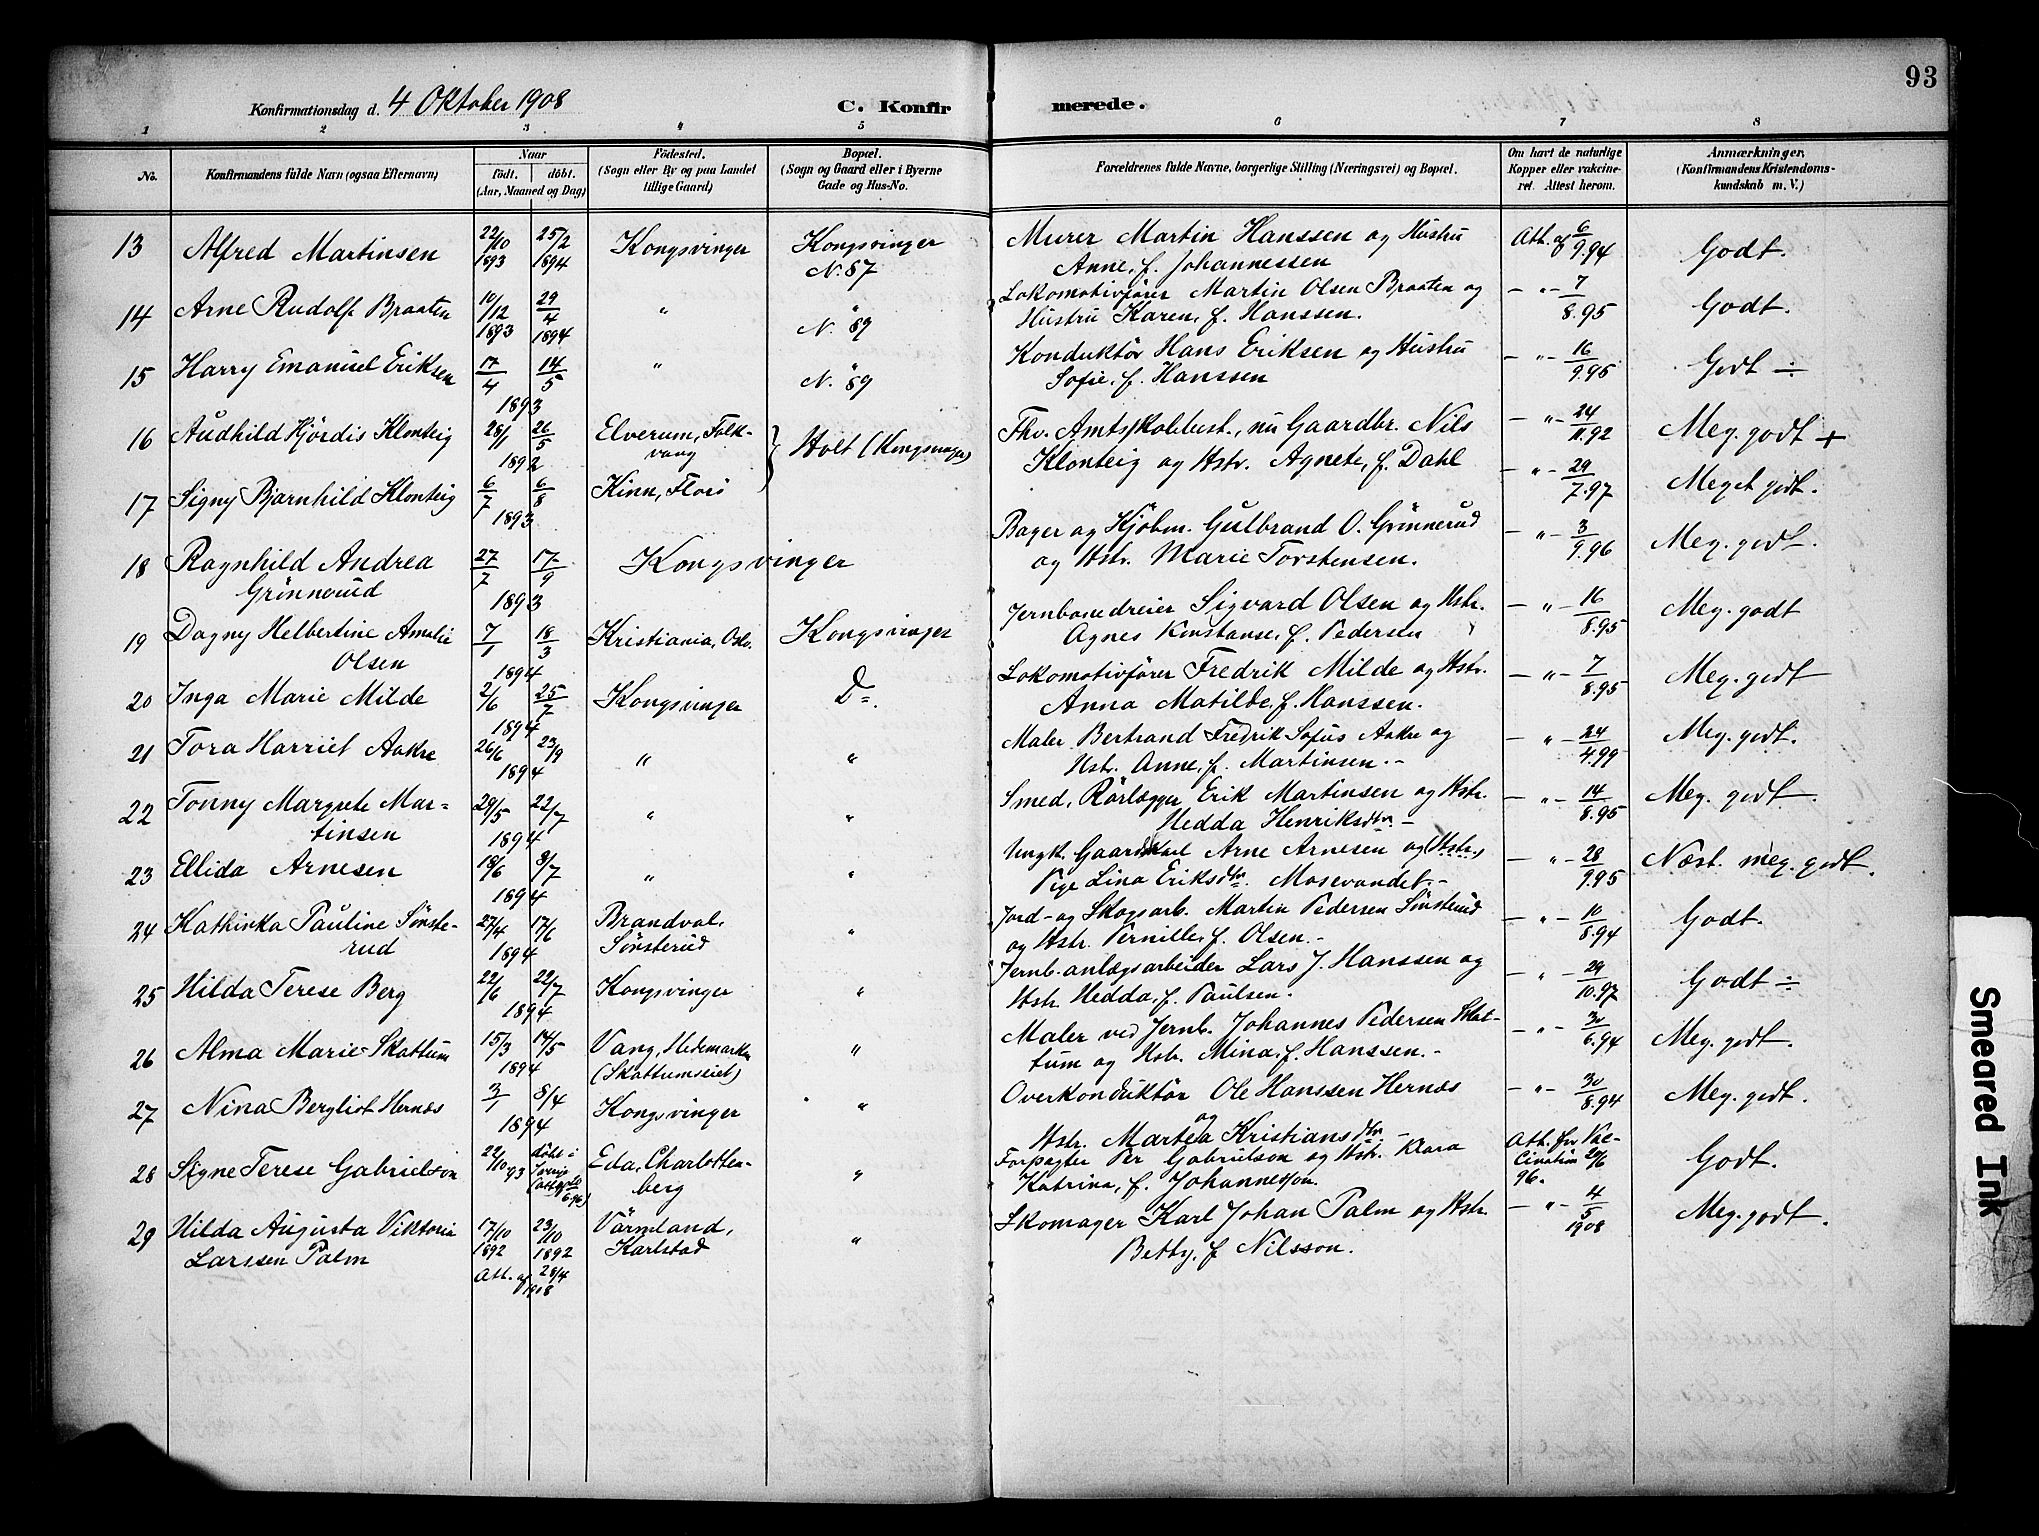 93
Konfirmationsdag d. 4 Oktober 1908
C. Konfirmerede.
1 2 3 4 5 6 7 8
No.
Konfirmandens fulde Navn (ogsaa Efternavn)
Naar
Födt. döbt.
(Aar, Maaned og Dag)
Födested.
(Sogn eller By og paa Landet
tillige Gaard)
Bopæl.
(Sogn og Gaard eller i Byerne
Gade og Hus-No.
Forældrenes fulde Navne, borgerlige Stilling (Næringsvei) og Bopæl.
Om havt de naturlige
Kopper eller vakcine-
ret. Attest herom.
Anmærkninger,
(Konfirmandens Kristendoms-
kundskab m. V.)
13 Alfred Martinsen 22/10 1893 25/2 1894 Kongsvinger Kongsvinger N. 87
Murer Martin Hanssen og Hustru
Anne, f. Johannessen
Att. af 6/9.94 Godt.
14 Arne Rudolf Braaten 10/12 1893 29/4 1894 " " N. 89
Lokomotivfører Martin Olsen Braaten og
Hustru Karen, f. Hanssen.
— " — 7/8.95 Godt.
15 Harry Emanuel Eriksen 17/4 14/5 1893 " " N. 89
Konduktör Hans Eriksen og Hustru
Sofie, f. Hanssen
— " — 16/9.95 Godt ÷
16 Audhild Hjördis Klonteig 28/1 26/5 1892 Elverum, Folk-
vang
Holt (Kongsvinger)
Fhv. Amtsskolebest., nu Gaardbr. Nils
Klonteig og Hstr. Agnete, f. Dahl
— " — 24/11.92 Meg. godt +
17 Signy Bjarnhild Klonteig 6/7 6/8 1893 Kinn, Florö
— " — 29/7.97 Meget godt.
18 Ragnhild Andrea
Grönnerud
27/7 17/9 1893 Kongsvinger
Bager og Kjöbm. Gulbrand O. Grönnerud
og Hstr. Marie Torstensen.
— " — 3/9.96 Meg. godt.
19 Dagny Helbertine Amalie
Olsen
7/1 18/3 1894 Kristiania, Oslo. Kongsvinger
Jernbanedreier Sigvard Olsen og Hstr.
Agnes Konstanse, f. Pedersen
— " — 16/8.95 Meg. godt
20 Inga Marie Milde 2/6 25/7 1894 Kongsvinger Do.
Lokomotivfører Fredrik Milde og Hstr.
Anna Matilde, f. Hanssen.
— " — 7/8.95 Meg. godt
21 Tora Harriet Aakre 26/6 23/9 1894 " "
Maler Bertrand Fredrik Sofus Aakre og
Hstr. Anne, f. Martinsen. -
— " — 24/4.99 Meg. godt.
22 Tonny Margrete Mar-
tinsen
29/5 22/7 1894 " "
Smed, Rörlægger Erik Martinsen og Hstr.
Hedda Henriksdtr. -
— " — 14/8.95 Meg. godt.
23 Ellida Arnesen 18/6 8/7 1894 " "
Ungk. Gaardskarl Arne Arnesen og Hstr.,
Pige Lina Eriksdtr. Masevandet. -
— " — 28/9.95 Næst. meg. godt.
24 Kathinka Pauline Sönste-
rud
27/4 17/6 1894 Brandval,
Sønsterud
"
Jord- og Skogsarb. Martin Pedersen Sønsterud
og Hstr. Pernille, f. Olsen. -
— " — 10/8.94 Godt.
25 Hilda Terese Berg 22/6 22/7 1894 Kongsvinger "
Jernb. anlægsarbeider Lars J. Hanssen og
Hstr. Hedda, f. Paulsen.
— " — 29/10.97 Godt ÷
26 Alma Marie Skattum 15/3 14/5 1894 Vang, Hedemarken
(Skattumseiet)
"
Maler ved Jernb. Johannes Pedersen Skat-
tum og Hstr. Mina, f. Hanssen. -
— " — 30/6.94 Meg. godt.
27 Nina Bergliot Hernæs 3/1 8/4 1894 Kongsvinger "
Overkonduktör Ole Hanssen Hernæs
og
Hstr. Martea Kristiansdtr. -
— " — 30/8.94 Meg. godt.
28 Signe Terese Gabrielson 22/10 93 döbt i
Eda, Charlotten-
berg
"
Forpagter Per Gabrielson og Hstr. Klara
Katrina, f. Johannesson.
Att. for Vac-
cination 29/6
96.
Godt.
29 Hilda Augusta Viktoria
Larssen Palm
17/10 1892 23/10 1892
Att. af 28/4 1908
Värmland,
Karlstad
"
Skomager Karl Johan Palm og Hstr.
Betty, f. Nilsson.
— " — 4/5 1908 Meg. godt.
Smeared Ink